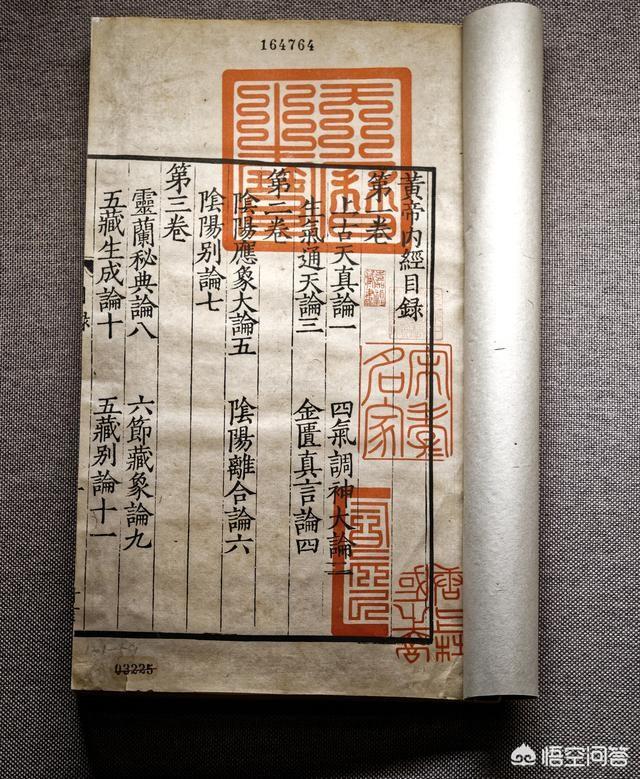 164764
黃帝内經目錄
第一卷
上古天真論一 四氣調神大論二
生氣通天論三 金匱真言論四
第二卷
陰陽應象大論五 陰陽離合論六
陰陽别論七
第三卷
靈蘭秘典論八 六節藏象論九
五藏生成論十 五藏别論十一
名家
03225
悟空问答